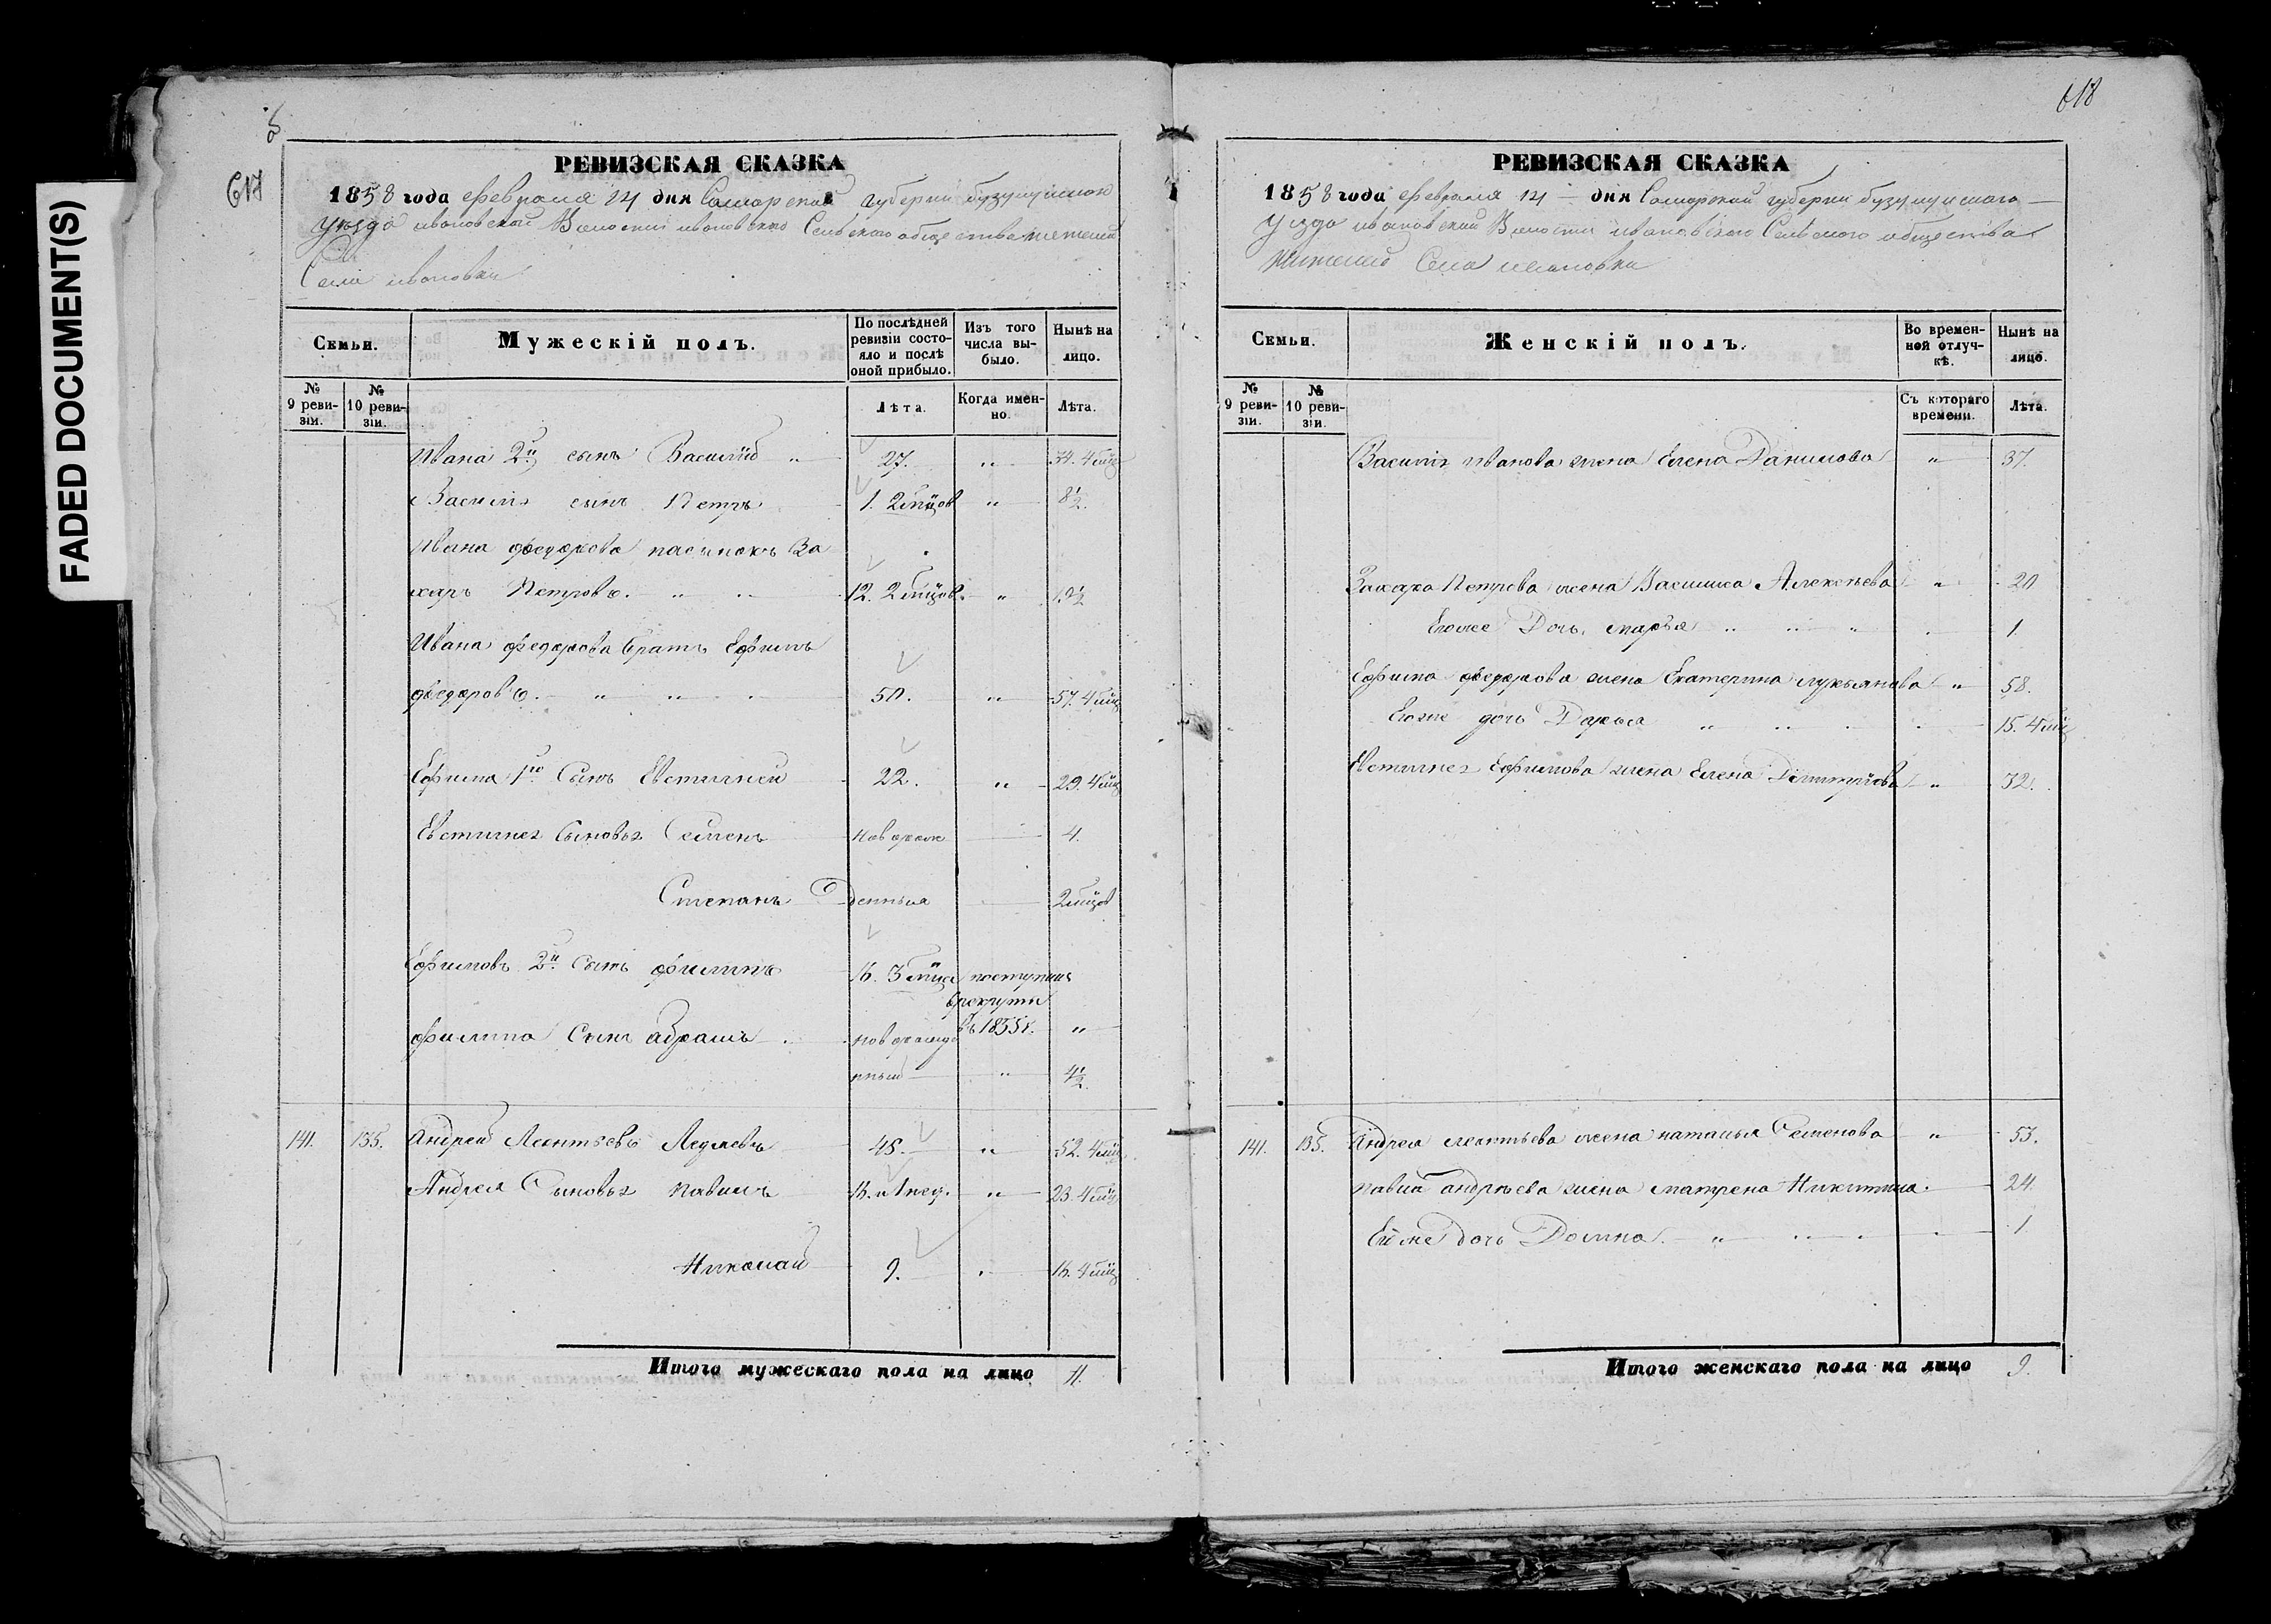 FADED DOCUMENT(S)
617
РЕВИЗСКАЯ СКАЗКА
1858 года февраля 14 дня Самарской губернии бузулуцкого
уезда ивановской Волости ивановского Сельского общества жителей
Села ивановки
Семьи.
Мужескій полъ.
По послѣдней ревизіи состояло и послѣ оной прибыло.
Изъ того числа выбыло.
Нынѣ на лицо.
№ 9 ревизіи.
№ 10 ревизіи.
Лѣта.
Когда именно.
Лѣта.
Ивана 2й сынъ Василий " 27. " 34. 4 мц
Василия сынъ Петръ 1. 2 мцов " 8½
Ивана федорова пасынокъ За
харъ Петровъ. " " 12. 2 мцов. " 19½
Ивана федорова братъ Ефимъ
федоровъ. " " 50. " 57. 4 мц
Ефима 1й Сынъ Евстигней 22. " 29. 4 мц
Евстигнея Сыновья Семенъ новорож 4.
Степанъ денныя 2 мцов
Ефимовъ 2й Сынъ филипъ 16. 3 мца поступилъ
врекруты
въ 1855г. "
филипа Сынъ абрамъ новорожде
нный " 4½
141. 135. Андрей Леонтьевъ 45. " 52. 4 мц
Андрея Сыновья павилъ " 23. 4 мц
Николай 9. " 16. 4 мц
Итого мужескаго пола на лицо 11.
618
РЕВИЗСКАЯ СКАЗКА
1858 года февраля 14 дня Самарской губернии бузулуцкого
Уезда ивановской Волости ивановского Сельского общества
жителей Села ивановки
Семьи.
Женскій полъ.
Во временной отлучкѣ.
Нынѣ на лицо.
№ 9 ревизіи.
№ 10 ревизіи.
Съ котораго времени.
Лѣта.
Василия иванова жена Елена Данилова " 37.
Захара Петрова жена Василиса Алексѣева " 20
Егоже Дочь марья " " " 1.
Ефима федорова жена Екатерина лукьянова " 58.
Егоже дочь Дарья " " 15. 4 мц
Евстигнея Ефимова жена Елена Димитриева " 32.
141. 135. Андрея леонтьева жена наталья Семенова " 53.
павила андрѣева жена матрена Никитина. 24.
Егоже дочь Домна " " 1.
Итого женскаго пола на лицо 9.